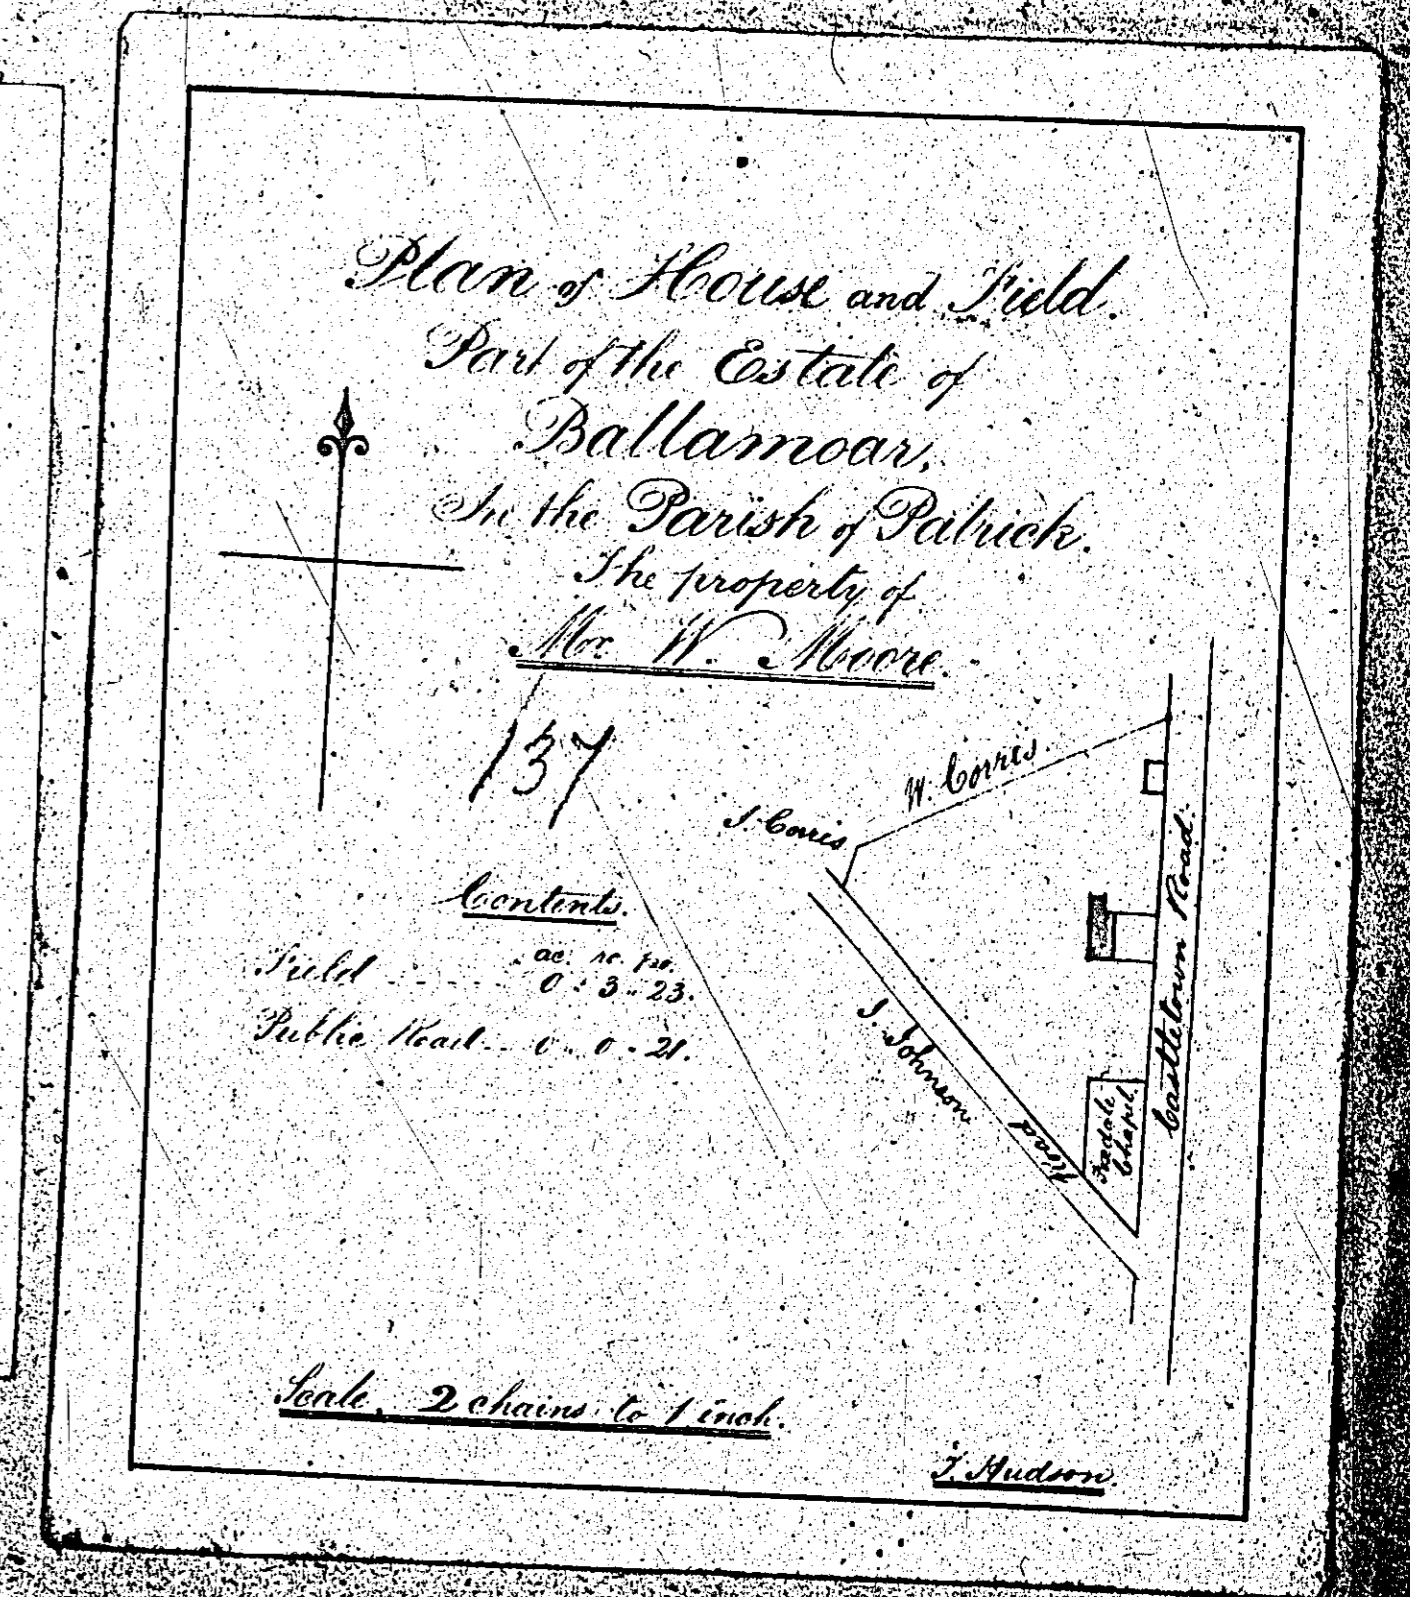 Plan of House and Field.
Part of the Estate of
Ballamoar,
In the Parish of Patrick.
The property of
Mr. W. Moore.
137
W. Corris.
J. Corris
Castletown Road.
Contents.
ac. ro. po.
Field - - - - - 0 : 3 .. 23.
Public Road - - 0 .. 0 - 21.
J. Johnson
Road
Foxdale Chapel.
Scale, 2 chains to 1 inch.
T. Hudson.